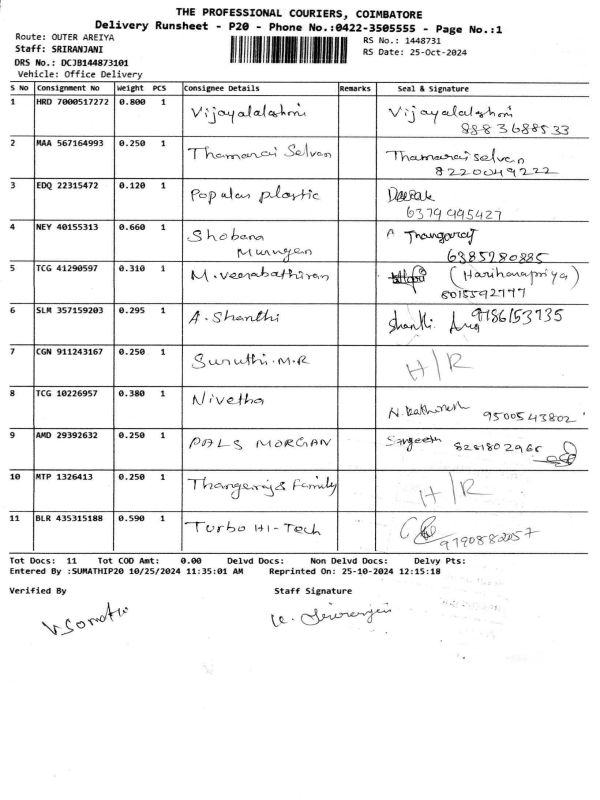 THE PROFESSIONAL COURIERS, COIMBATORE
Delivery Runsheet - P20 - Phone No.:0422-3505555 - Page No.:1
Route: OUTER AREIYA
RS No.: 1448731
Staff: SRIRANJANI
RS Date: 25-Oct-2024
DRS No.: DCJB144873101
Vehicle: Office Delivery
S No Consignment No Weight PCS Consignee Details Remarks Seal & Signature
1 HRD 7000517272 0.800 1 Vijayalakshmi Vijayalakshmi
8883688533
2 MAA 567164993 0.250 1 Thamarai Selvan Thamaraiselvan
8220049222
3 EDQ 22315472 0.120 1 Popular plastic Deepak
6379995427
4 NEY 40155313 0.660 1 Shobana A Thangaraj
Murugan 6385780885
5 TCG 41290597 0.310 1 M.veerabathiran (Hariharapriya)
8015592777
6 SLM 357159203 0.295 1 A.Shanthi Shanthi 9786153735
7 CGN 911243167 0.250 1 Suruthi.M.R H/R
8 TCG 10226957 0.380 1 Nivetha N.Kathiresh 9500543802
9 AMD 29392632 0.250 1 PALS MORGAN Sangeeth
10 MTP 1326413 0.250 1 Thangaraj & Family H/R
11 BLR 435315188 0.590 1 Turbo HI-Tech
Tot Docs: 11 Tot COD Amt: 0.00 Delvd Docs: Non Delvd Docs: Delvy Pts:
Entered By :SUMATHIP20 10/25/2024 11:35:01 AM Reprinted On: 25-10-2024 12:15:18
Verified By Staff Signature